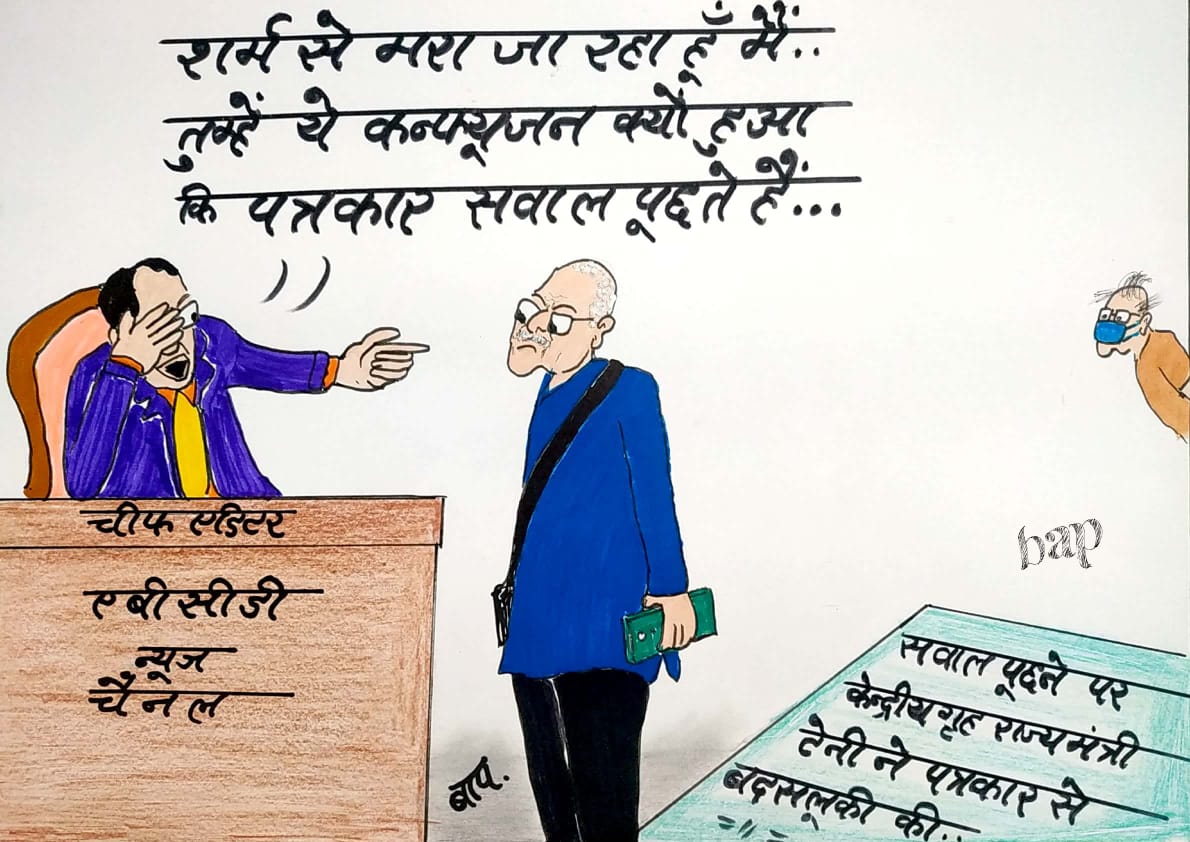 शर्म से मरा जा रहा हूँ मैं..
तुम्हें ये कन्फ्यूजन क्यों हुआ
कि पत्रकार सवाल पूछते हैं...
चीफ एडिटर
ए बी सी डी
न्यूज
चैनल
बाप.
bap
सवाल पूछने पर
केन्द्रीय गृह राज्य मंत्री
टेनी ने पत्रकार से
बदसलूकी की..